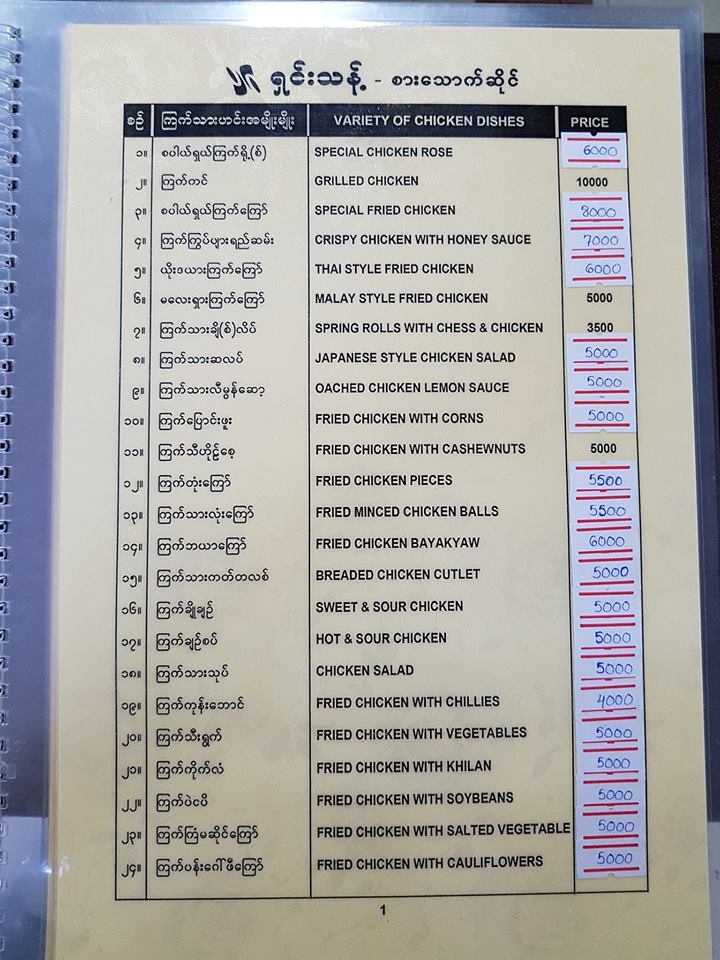 ရှင်းသန့် - စားသောက်ဆိုင်
စဉ် ကြက်သားဟင်းအမျိုးမျိုး VARIETY OF CHICKEN DISHES PRICE
၁။ စပါယ်ရှယ်ကြက်ရို့(စ်) SPECIAL CHICKEN ROSE 6000
၂။ ကြက်ကင် GRILLED CHICKEN 10000
၃။ စပါယ်ရှယ်ကြက်ကြော် SPECIAL FRIED CHICKEN 8000
၄။ ကြက်ကြွပ်ပျားရည်ဆမ်း CRISPY CHICKEN WITH HONEY SAUCE 7000
၅။ ယိုးဒယားကြက်ကြော် THAI STYLE FRIED CHICKEN 6000
၆။ မလေးရှားကြက်ကြော် MALAY STYLE FRIED CHICKEN 5000
၇။ ကြက်သားချိ(စ်)လိပ် SPRING ROLLS WITH CHESS & CHICKEN 3500
၈။ ကြက်သားဆလပ် JAPANESE STYLE CHICKEN SALAD 5000
၉။ ကြက်သားလီမွန်ဆော့ OACHED CHICKEN LEMON SAUCE 5000
၁၀။ ကြက်ပြောင်းဖူး FRIED CHICKEN WITH CORNS 5000
၁၁။ ကြက်သီဟိုဠ်စေ့ FRIED CHICKEN WITH CASHEWNUTS 5000
၁၂။ ကြက်တုံးကြော် FRIED CHICKEN PIECES 5500
၁၃။ ကြက်သားလုံးကြော် FRIED MINCED CHICKEN BALLS 5500
၁၄။ ကြက်ဘယာကြော် FRIED CHICKEN BAYAKYAW 6000
၁၅။ ကြက်သားကတ်တလစ် BREADED CHICKEN CUTLET 5000
၁၆။ ကြက်ချိုချဉ် SWEET & SOUR CHICKEN 5000
၁၇။ ကြက်ချဉ်စပ် HOT & SOUR CHICKEN 5000
၁၈။ ကြက်သားသုပ် CHICKEN SALAD 5000
၁၉။ ကြက်ကုန်းဘောင် FRIED CHICKEN WITH CHILLIES 4000
၂၀။ ကြက်သီးရွက် FRIED CHICKEN WITH VEGETABLES 5000
၂၁။ ကြက်ကိုက်လံ FRIED CHICKEN WITH KHILAN 5000
၂၂။ ကြက်ပဲငပိ FRIED CHICKEN WITH SOYBEANS 5000
၂၃။ ကြက်ကြံမဆိုင်ကြော် FRIED CHICKEN WITH SALTED VEGETABLE 5000
၂၄။ ကြက်ပန်းဂေါ်ဖီကြော် FRIED CHICKEN WITH CAULIFLOWERS 5000
1